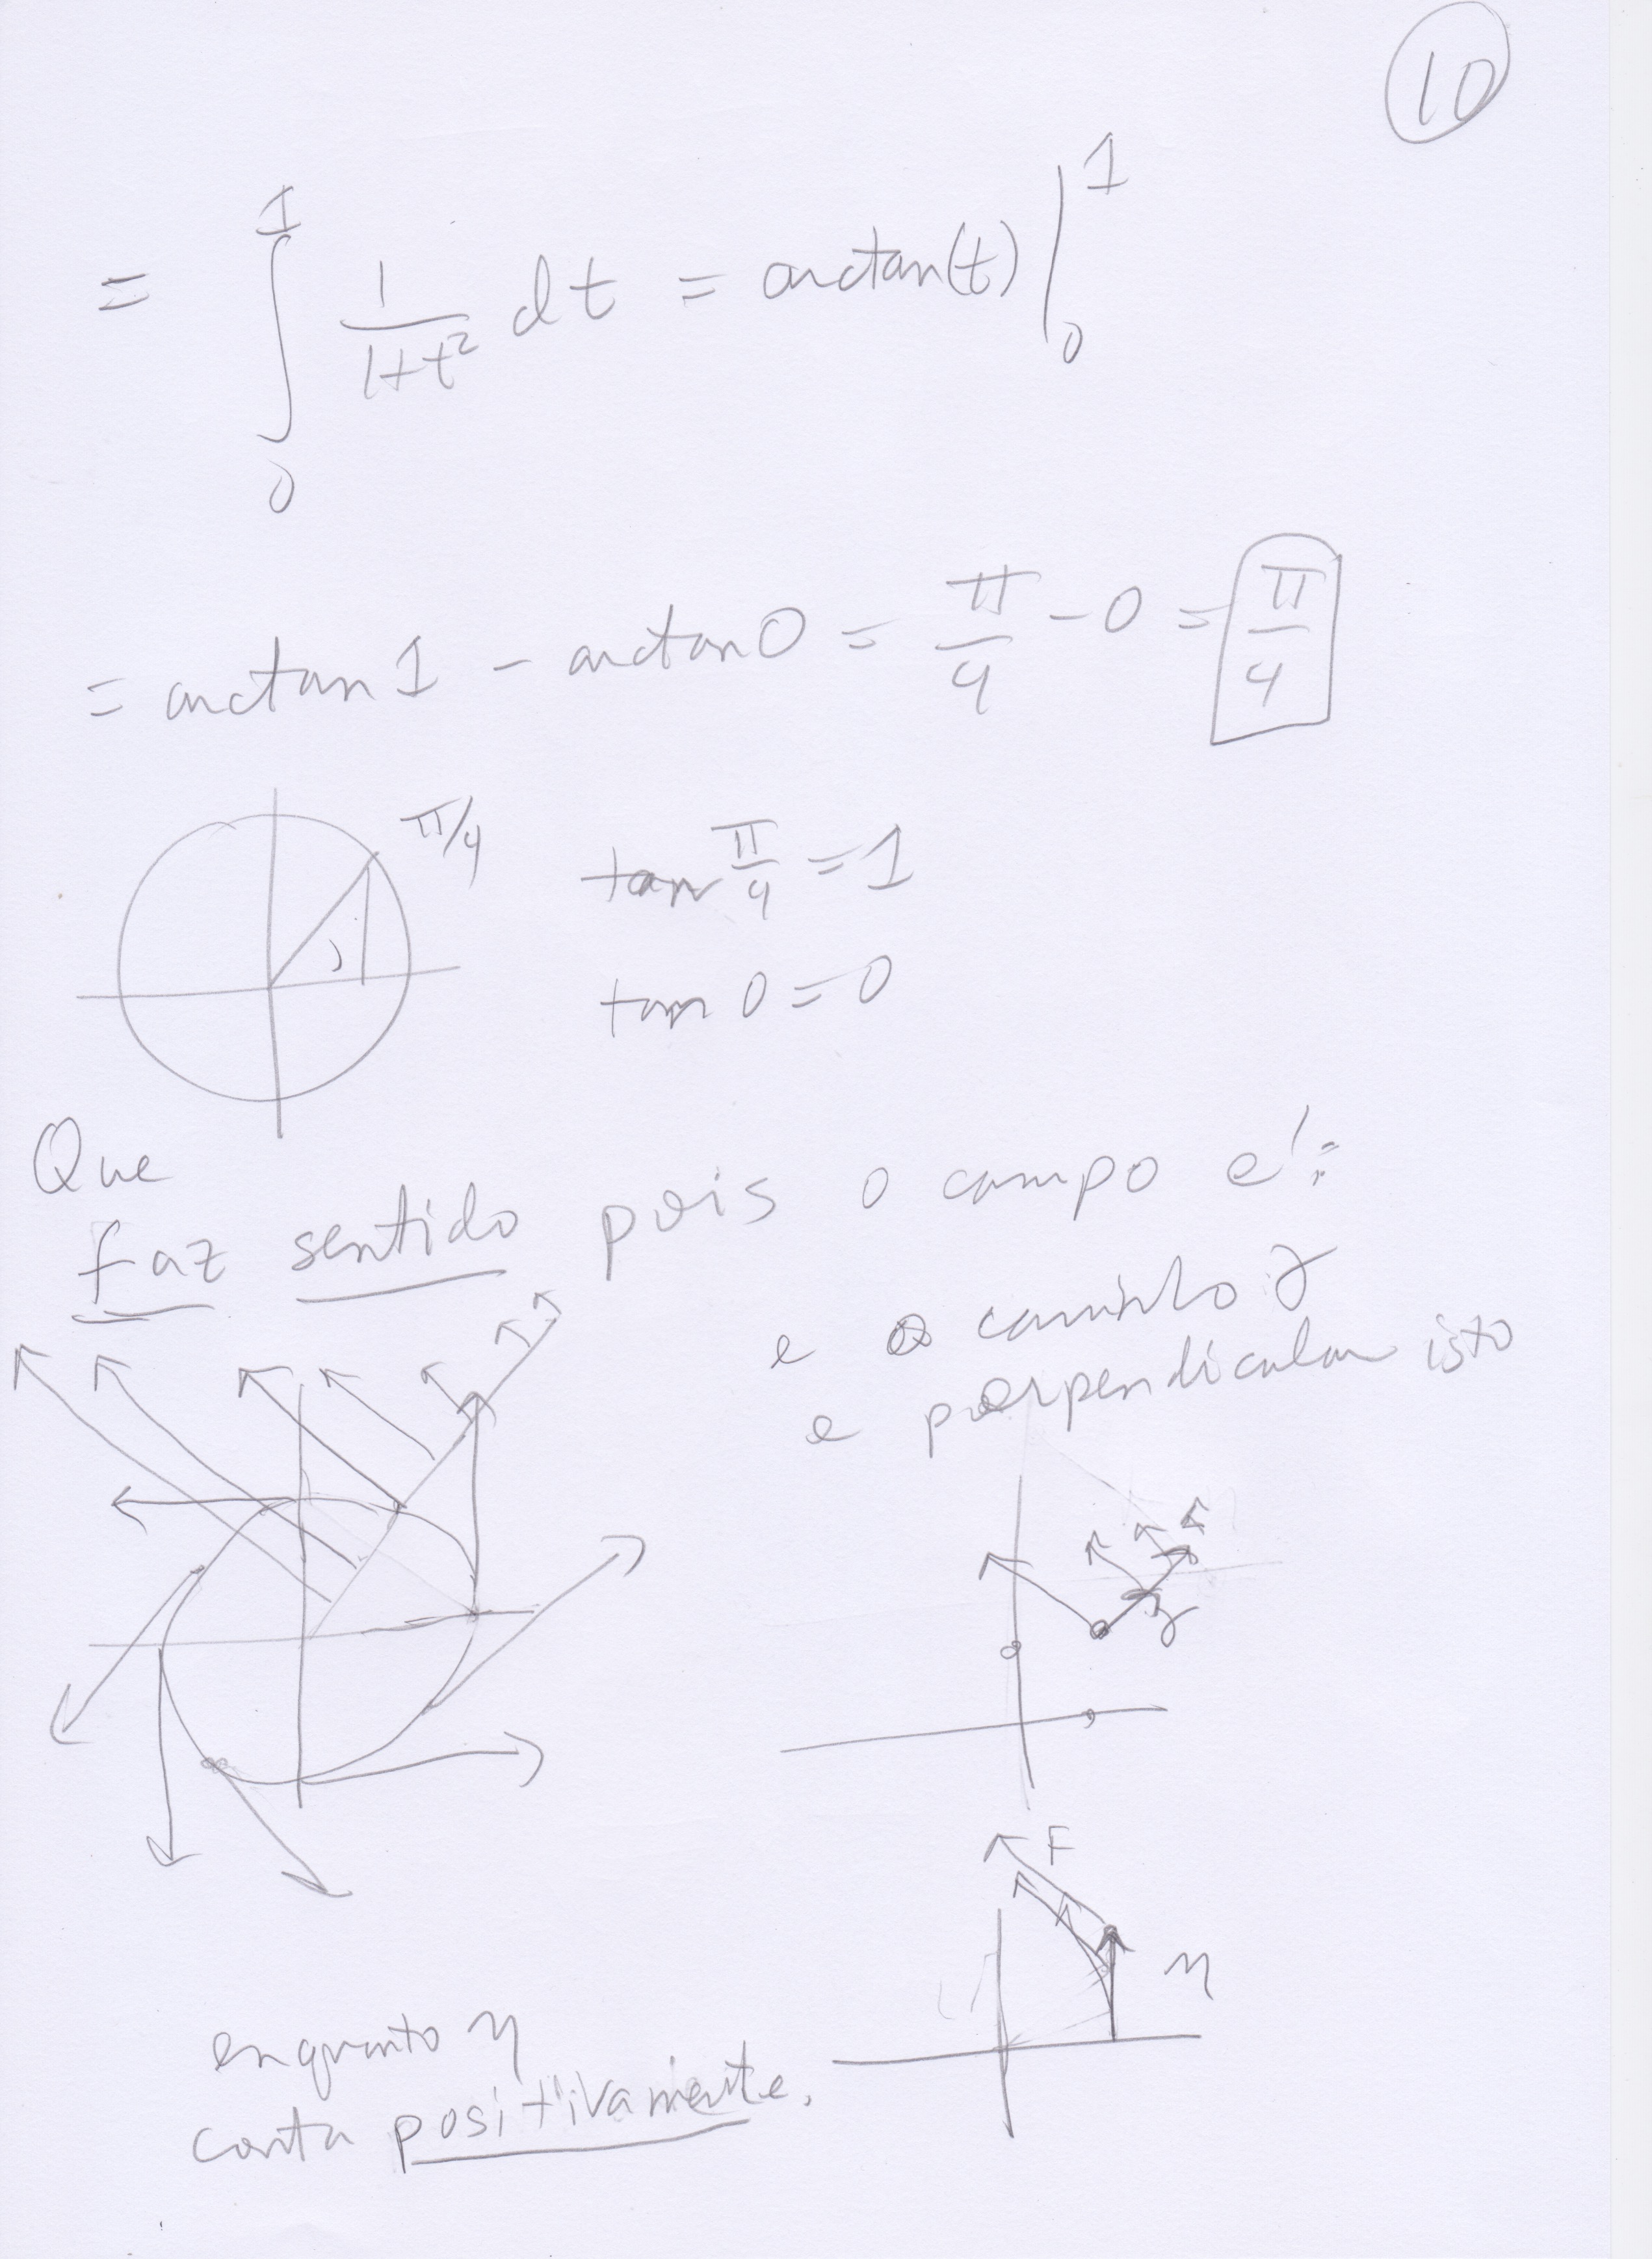 10
= ∫₀¹ 1/(1+t²) dt = arctan(t) |₀¹
= arctan 1 - arctan 0 = π/4 - 0 = π/4
π/4
tan π/4 = 1
tan 0 = 0
Que
faz sentido pois o campo é:
e o caminho γ
e perpendicular isto
γ
F
η
enquanto η
conta positivamente.